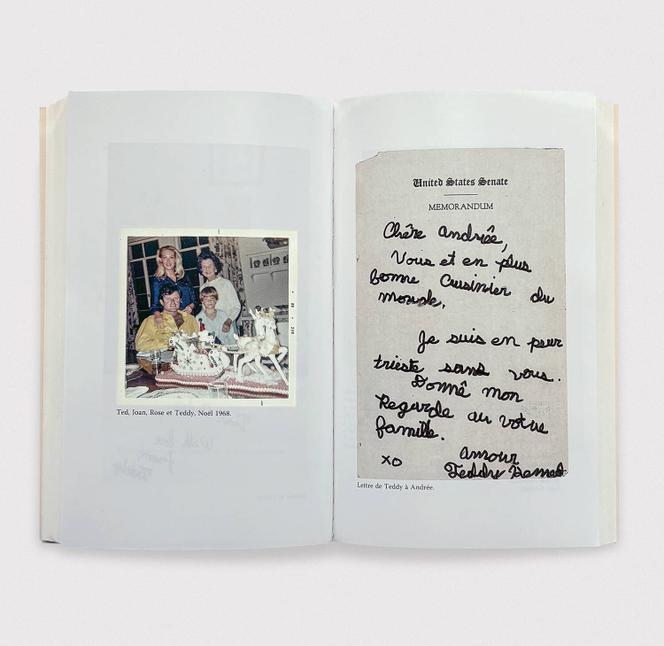 Ted, Joan, Rose et Teddy, Noël 1968.
United States Senate
MEMORANDUM
Chère Andrée,
Vous et en plus
bonne Cuisinier du
monde,
Je suis en peur
trieste sans vous.
Donnê mon
Regarde au votue
famille.
Amour
XO
Teddy
Lettre de Teddy à Andrée.